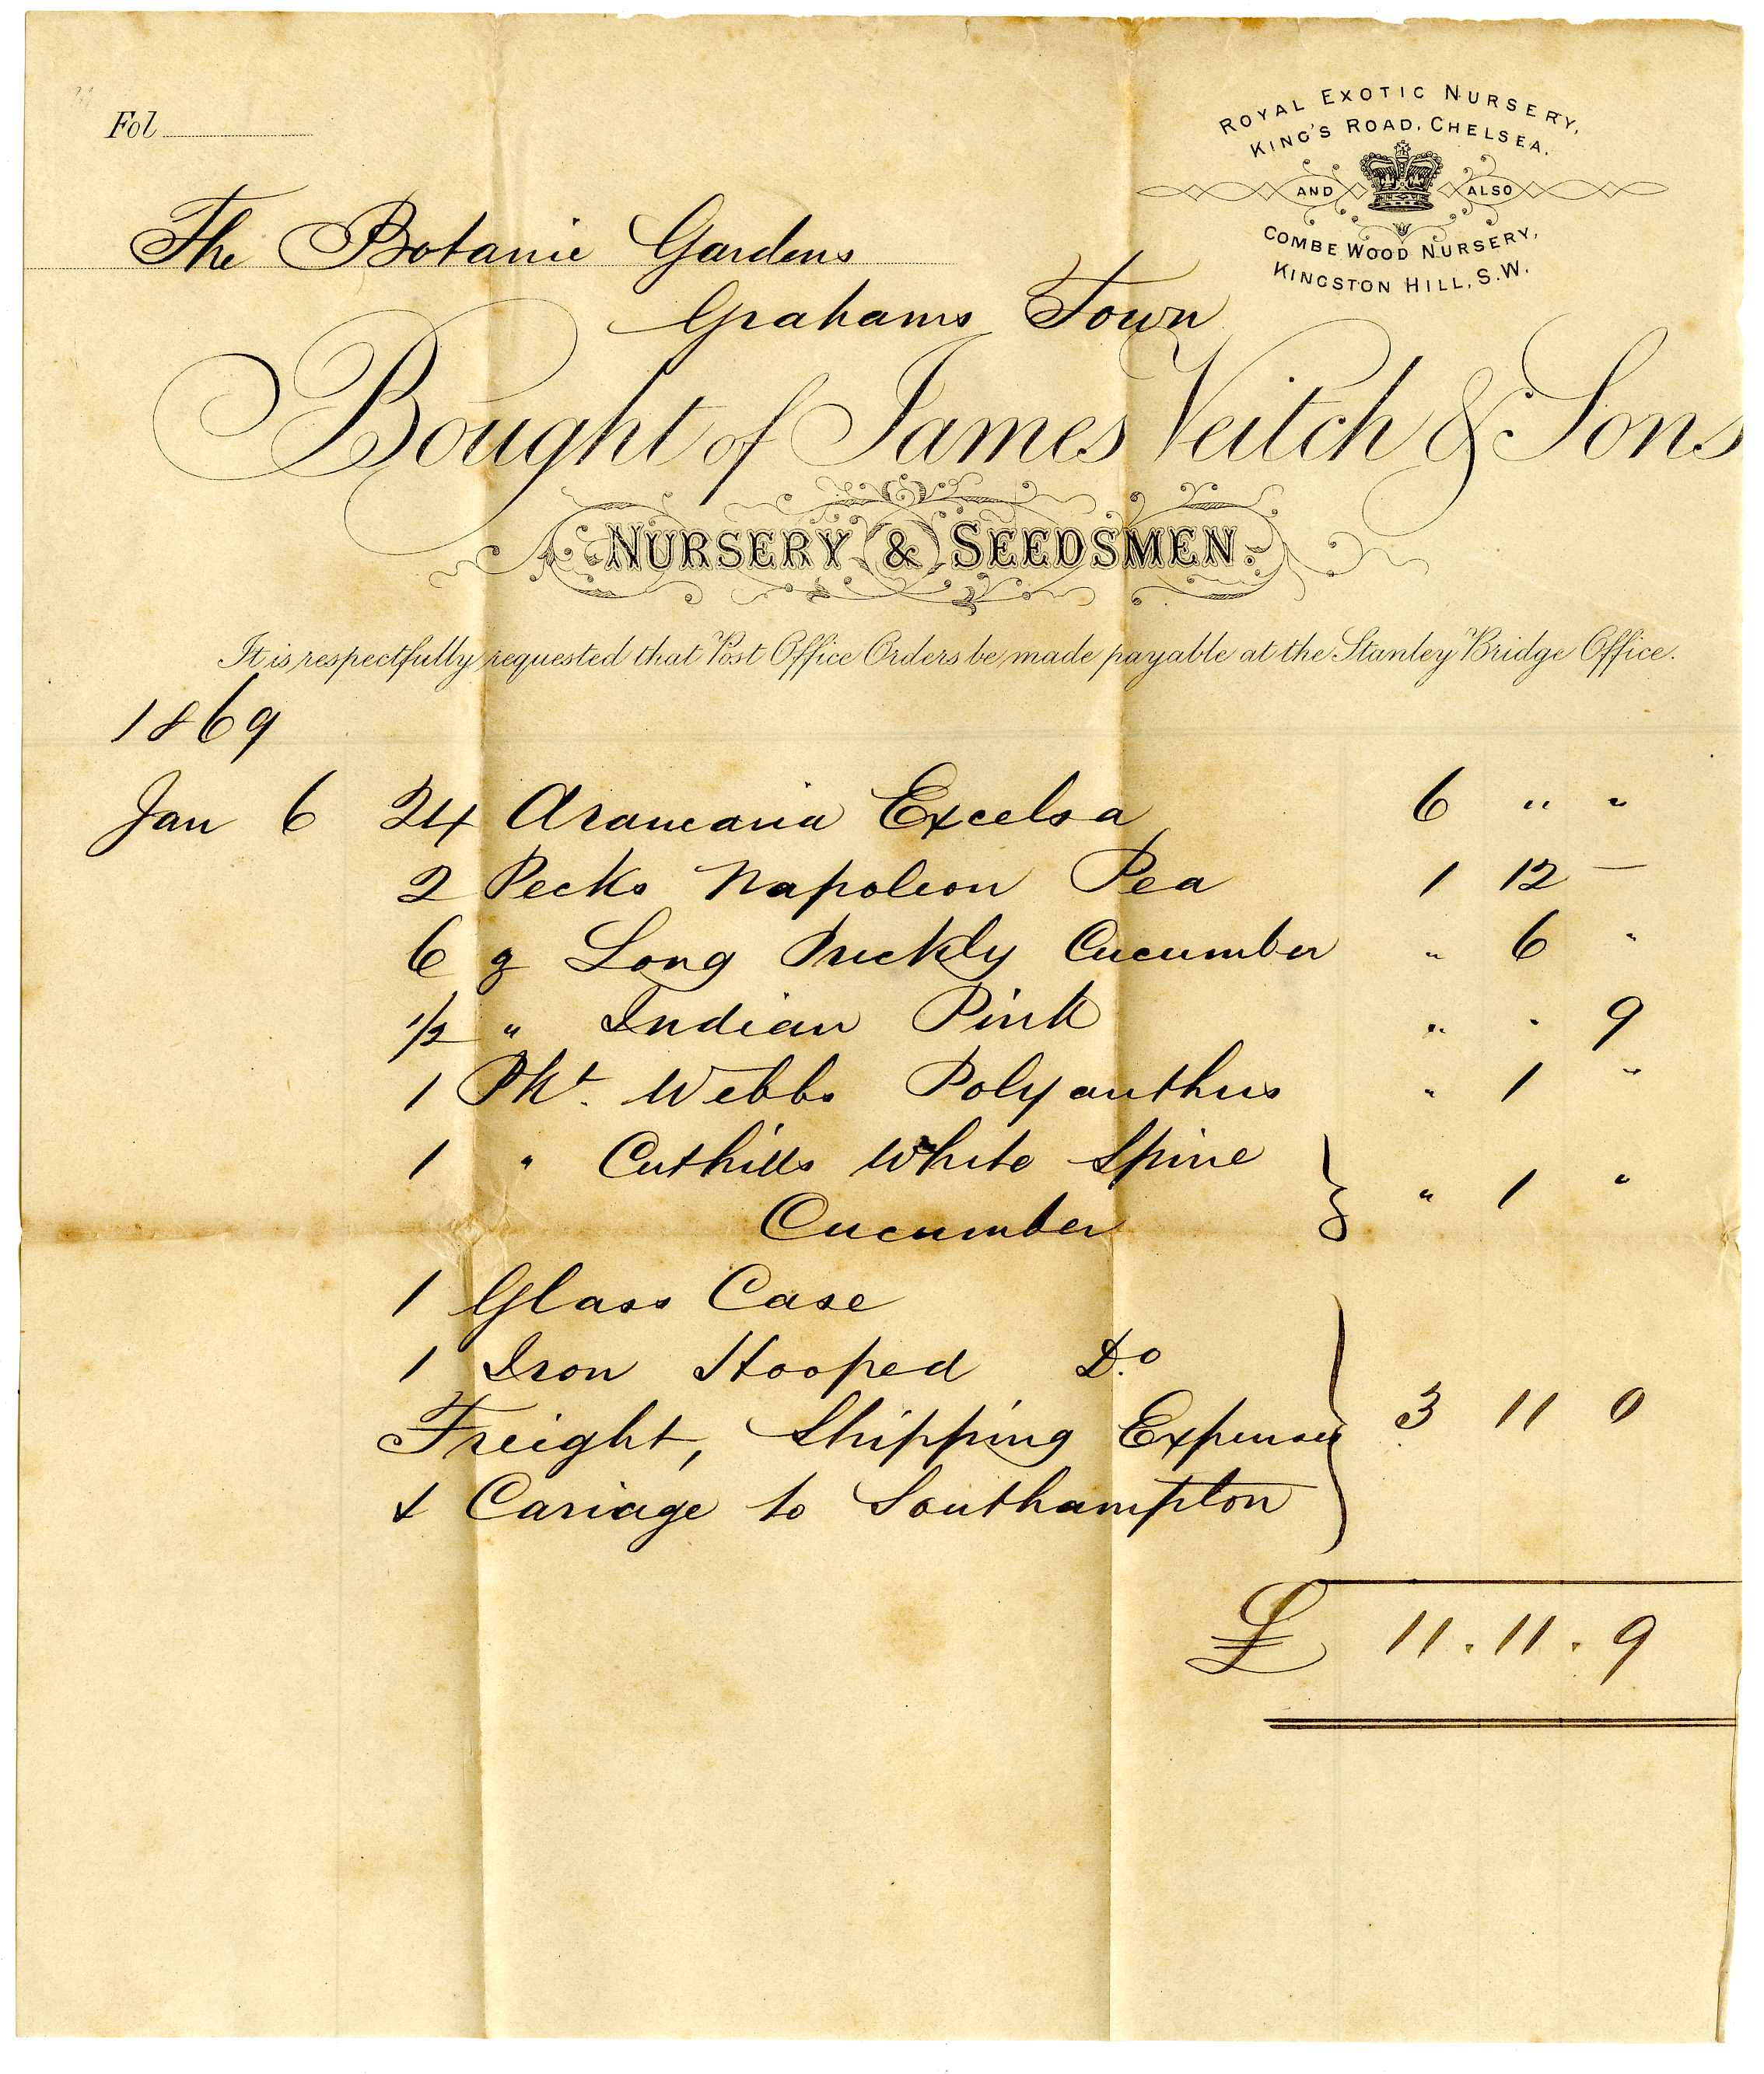 Fol
ROYAL EXOTIC NURSERY,
KING'S ROAD, CHELSEA.
AND ALSO
COMBE WOOD NURSERY,
KINGSTON HILL, S.W.
The Botanic Gardens
Grahams Town
Bought of James Veitch & Sons
NURSERY & SEEDSMEN.
It is respectfully requested that Post Office Orders be made payable at the Stanley Bridge Office.
1869
Jan 6 24 Araucaria Excelsa 6 " "
2 Pecks Napoleon Pea 1 12 —
6 Long Prickly Cucumber " 6 "
1/2 " Indian Pink " " 9
1 Pkt. Webbs Polyanthus " 1 "
1 " Cuthills White Spine
Cucumber " 1 "
1 Glass Case
1 Iron Hooped Do.
Freight, Shipping Expenses 3 11 0
& Cariage to Southampton
£ 11 . 11 . 9